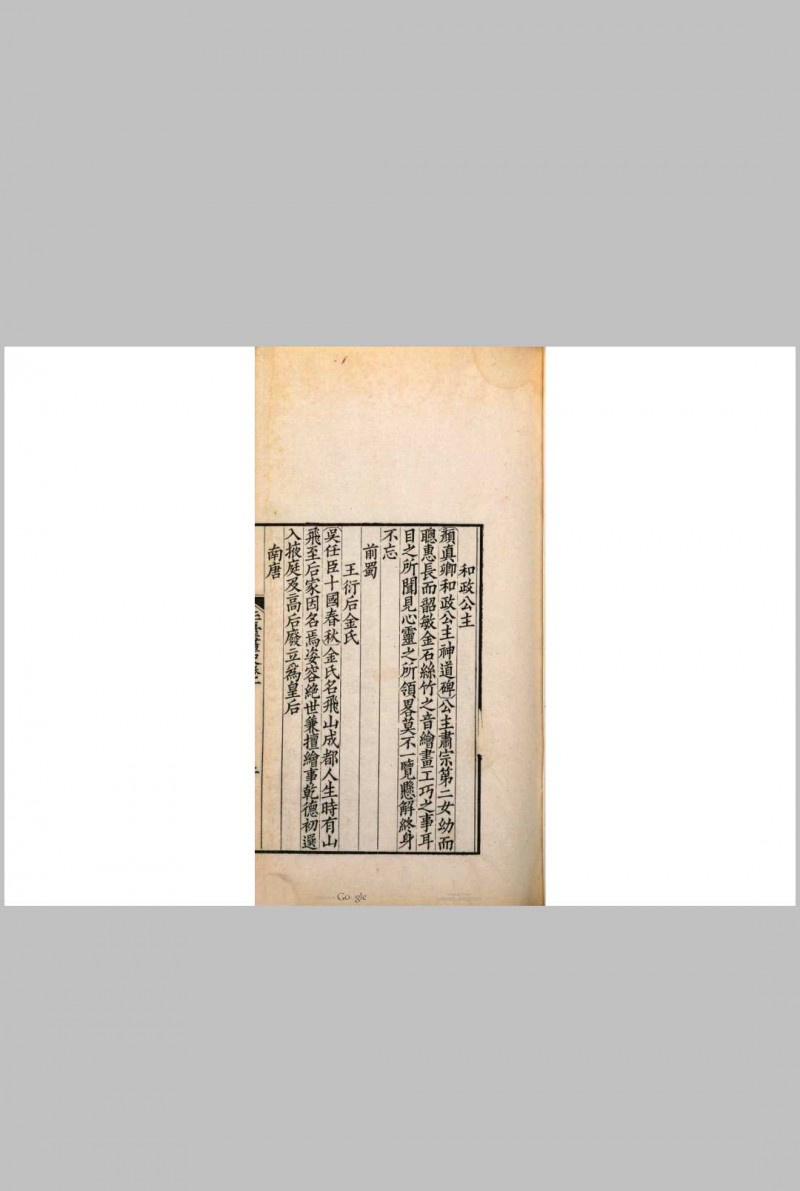 和政公主
顔真卿和政公主神道碑公主肅宗第二女幼而
聰惠長而韶敏金石絲竹之音繪畫工巧之事耳
目之所聞見心靈之所領畧莫不一覽懸解終身
不忘
前蜀
王衍后金氏
吳任臣十國春秋金氏名飛山成都人生時有山
飛至后家因名焉姿容絕世兼擅繪事乾德初選
入掖庭及高后廢立爲皇后
南唐